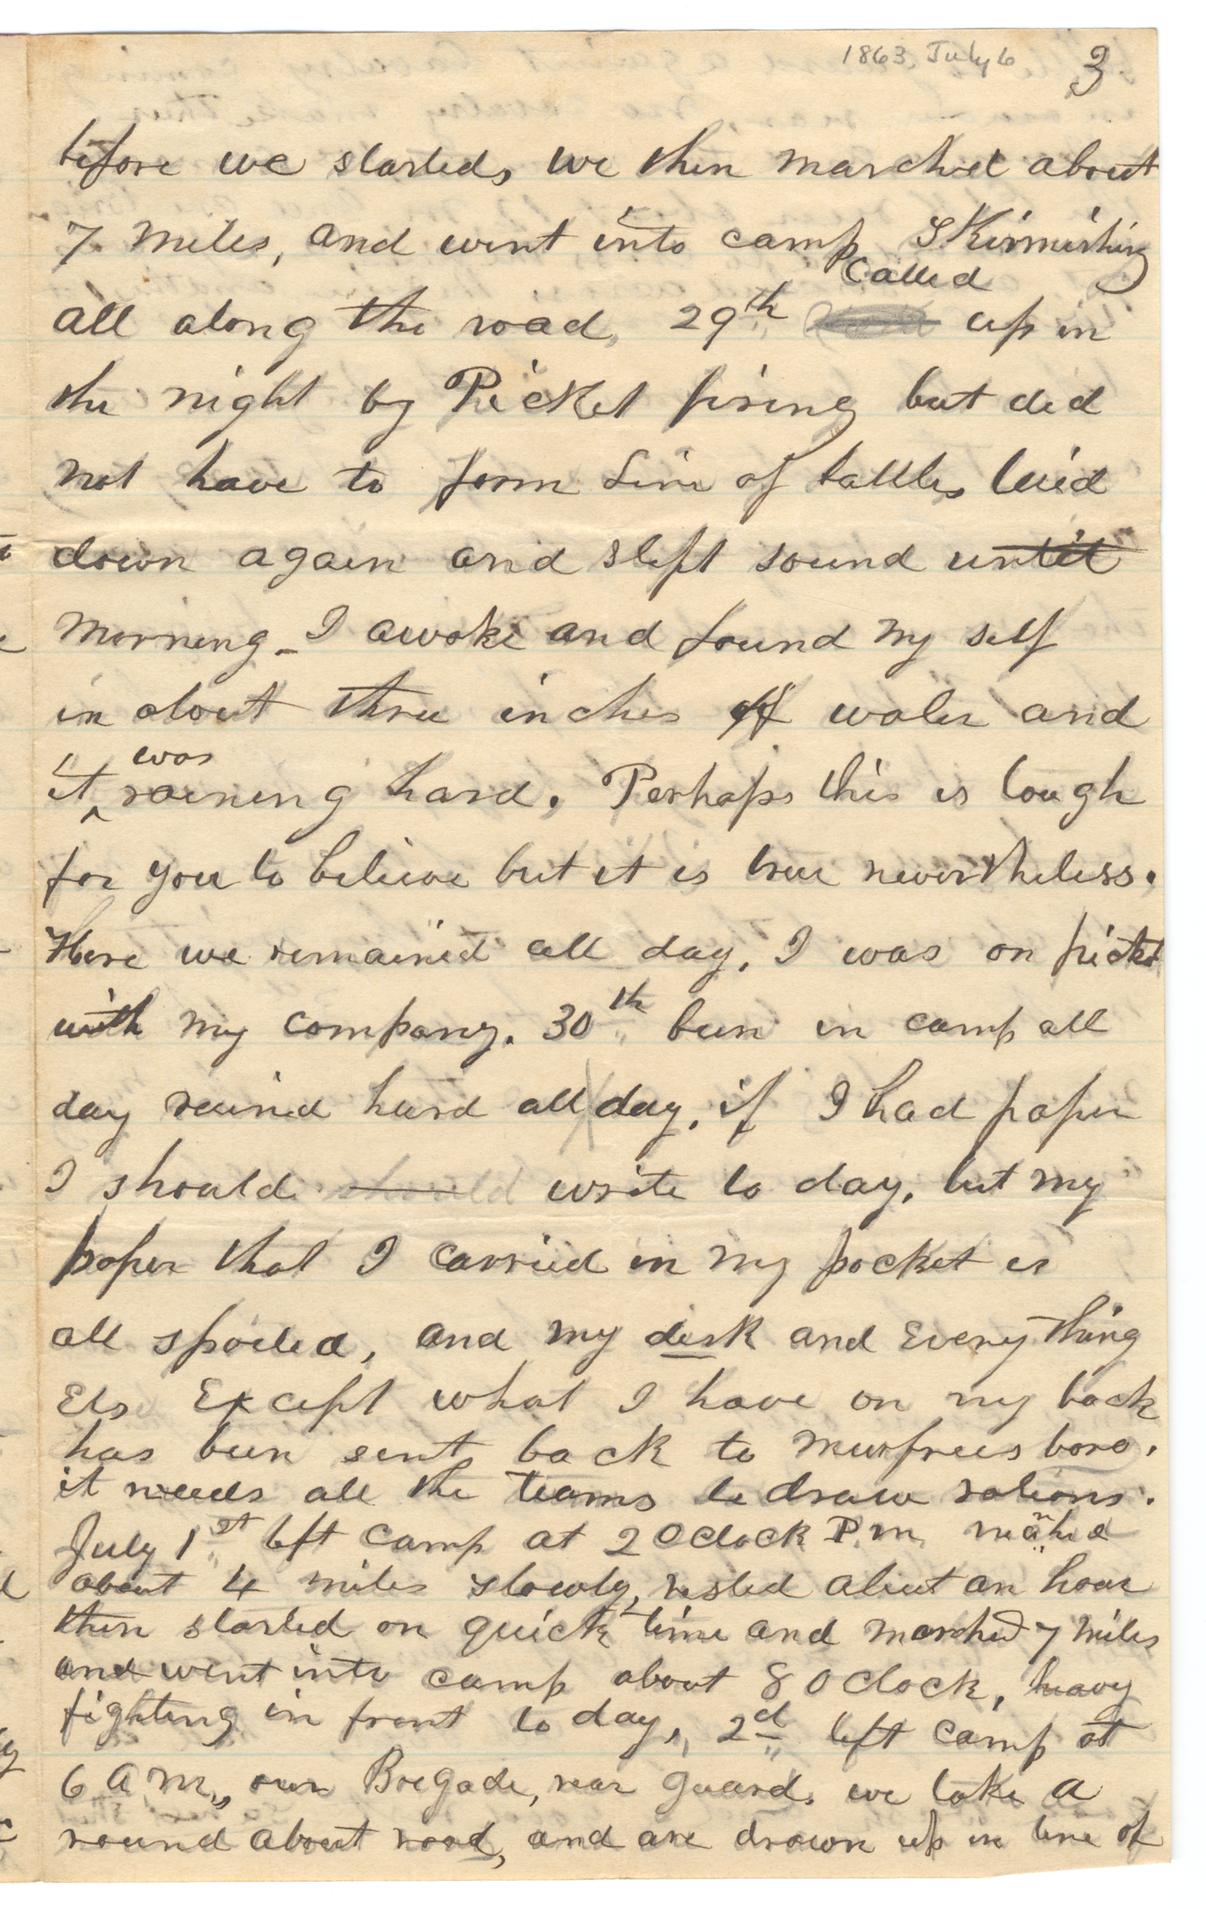 1863, July 6
3
before we started, we then marched about
7 miles, and went into camp Skirmishing
all along the road, 29th called up in
the night by Picket firing but did
not have to form Line of battle, laid
down again and slept sound until
morning - I awoke and found my self
in about three inches of water and
it was raining hard. Perhaps this is tough
for you to believe but it is true nevertheless.
Here we remained all day, I was on picket
with my company. 30th been in camp all
day rained hard all day, if I had paper
I should should write to day, but my
paper that I carried in my pocket is
all spoiled, and my desk and Every thing
Els Except what I have on my back
has been sent back to Murfreesboro.
it needs all the teams to draw rations.
July 1st left camp at 2 Oclock P.m.
about 4 miles slowly, rested about an hour
then started on quick time and marched 7 miles
and went into camp about 8 Oclock, heavy
fighting in front to day, 2d left camp at
6 A M., our Brigade, rear guard, we take a
round about road, and are drawn up in line of